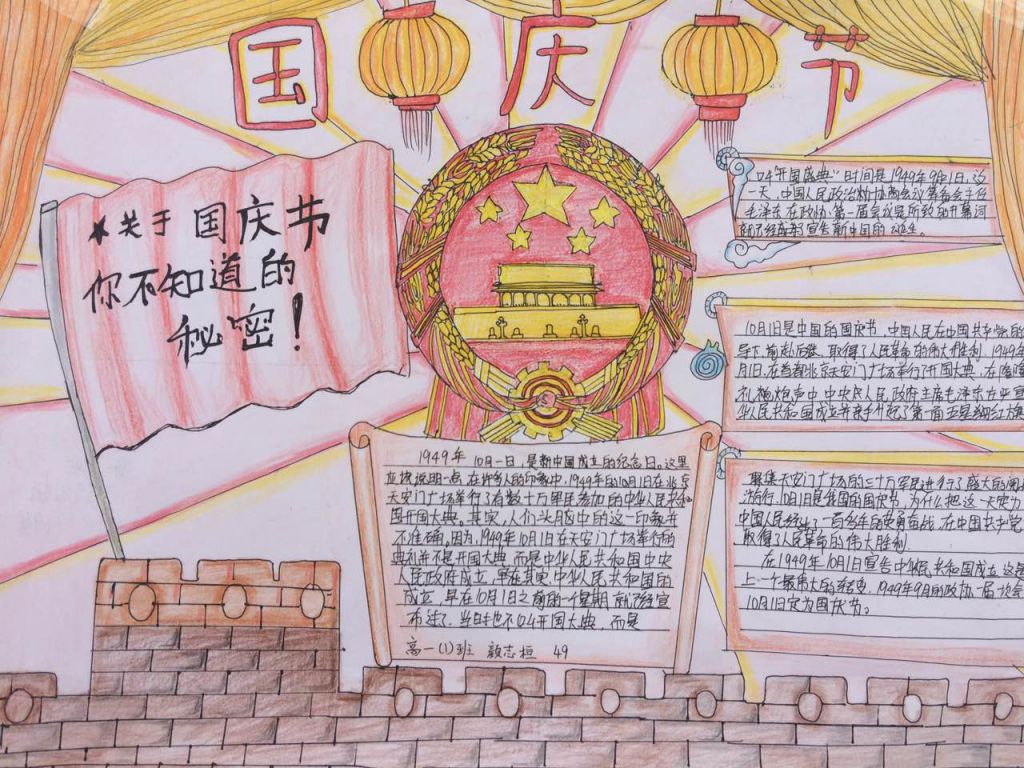 国庆节
★关于国庆节
你不知道的
秘密!
1949年10月一日,是新中国成立的纪念日。这里
应该说明一点,在许多人的印象中,1949年的10月1日在北京
天安门广场举行了有数十万军民参加的中华人民共和
国开国大典。其实,人们头脑中的这一印象并
不准确,因为,1949年10月1日在天安门广场举行的
典礼并不是开国大典,而是中华人民共和国中央
人民政府成立,早在其实,中华人民共和国的
成立,早在10月1日之前的一个星期就已经宣
布过了。当时也不叫开国大典,而是
高一(1)班 志桓 49
叫“开国盛典”时间是1949年9月1日,这
一天,中国人民政治协商会议筹备会主任
毛泽东在政协第一届会议是所致的开幕词
就已经宣告新中国的诞生。
10月1日是中国的国庆节,中国人民在中国共产党的
导下,前赴后继,取得了人民革命的伟大胜利,1949年
月1日,在首都北京天安门广场举行了开国大典,在隆隆
礼炮声中,中央人民政府主席毛泽东庄严宣
华人民共和国成立并亲手升起了第一面五星红旗
聚集天安门广场的三十万军民进行了盛大的阅
游行,10月1日是我国的国庆节,为什么把这一天定为
中国人民经过了一百多年的英勇奋战,在中国共产党
取得了人民革命的伟大胜利
在1949年10月1日宣告中华人民共和国成立,这是
上一个最伟大的转变,1949年9月的政协一届一次会
10月1日定为国庆节。